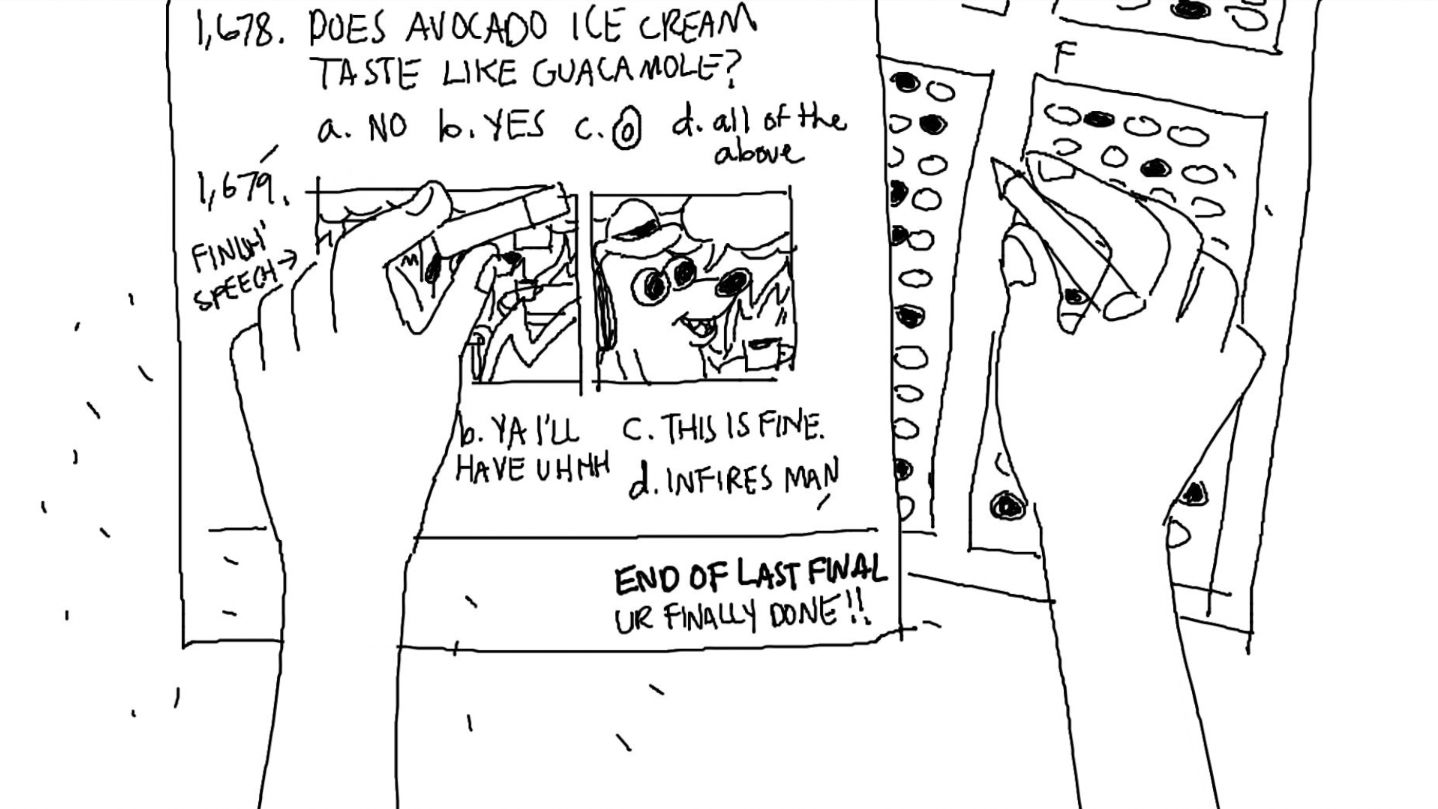 1,678. DOES AVOCADO ICE CREAM
TASTE LIKE GUACAMOLE?
a. NO b. YES c. d. all of the
above
1,679.
SPEECH
b. YA I'LL
HAVE UHHH
c. THIS IS FINE.
d. INFIRES MAN
END OF LAST FINAL
UR FINALLY DONE!!
F